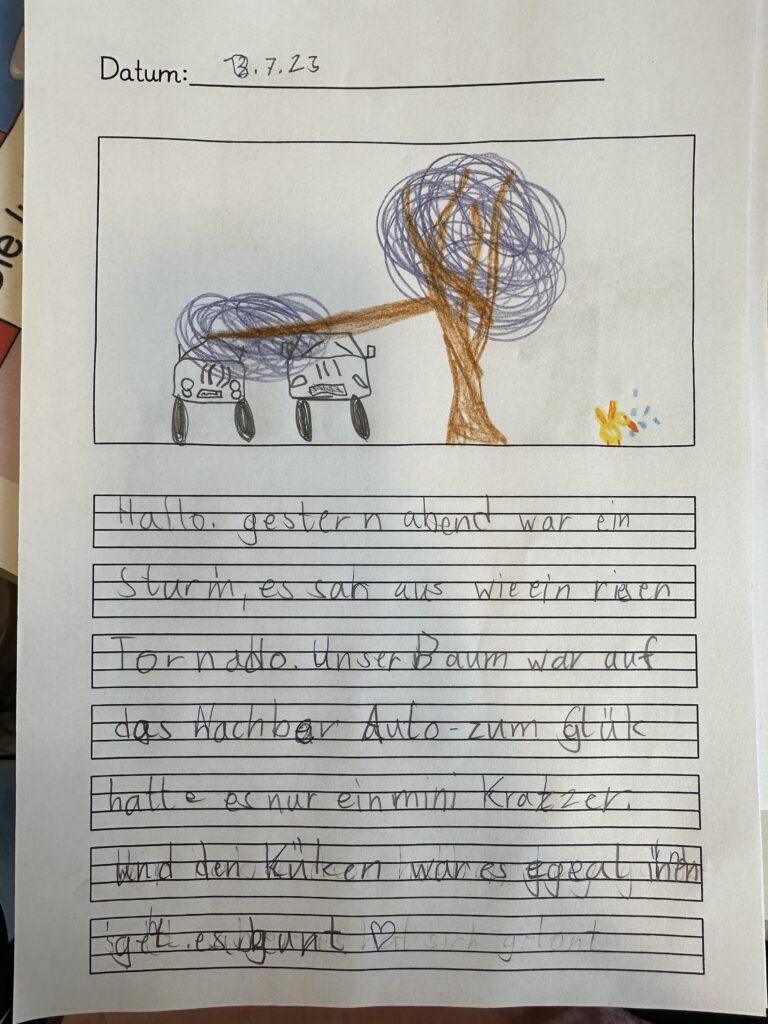 Datum: 13.7.23
Hallo. gestern abend war ein
Sturm, es sah aus wie ein riesen
Tornado. Unser Baum war auf
das Nachbar Auto-zum Glük
hatte es nur ein mini Kratzer.
Und den Küken war es egeal
get es ♡